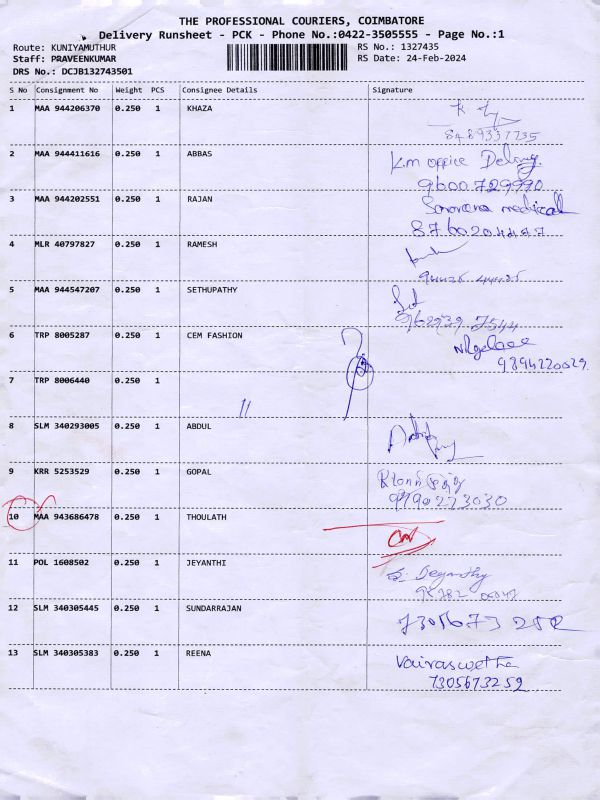 THE PROFESSIONAL COURIERS, COIMBATORE
Delivery Runsheet - PCK - Phone No.:0422-3505555 - Page No.:1
Route: KUNIYAMUTHUR RS No.: 1327435
Staff: PRAVEENKUMAR RS Date: 24-Feb-2024
DRS No.: DCJB132743501
S No Consignment No Weight PCS Consignee Details Signature
1 MAA 944206370 0.250 1 KHAZA
8489337735
2 MAA 944411616 0.250 1 ABBAS K.m office
9600729990
3 MAA 944202551 0.250 1 RAJAN medical
8760204447
4 MLR 40797827 0.250 1 RAMESH
5 MAA 944547207 0.250 1 SETHUPATHY
9629397544
6 TRP 8005287 0.250 1 CEM FASHION
9894220029
7 TRP 8006440 0.250 1
11
8 SLM 340293005 0.250 1 ABDUL
9 KRR 5253529 0.250 1 GOPAL
9790273030
10 MAA 943686478 0.250 1 THOULATH
11 POL 1608502 0.250 1 JEYANTHI Jeyanthy
12 SLM 340305445 0.250 1 SUNDARRAJAN
13 SLM 340305383 0.250 1 REENA Vairaswetha
7305673259